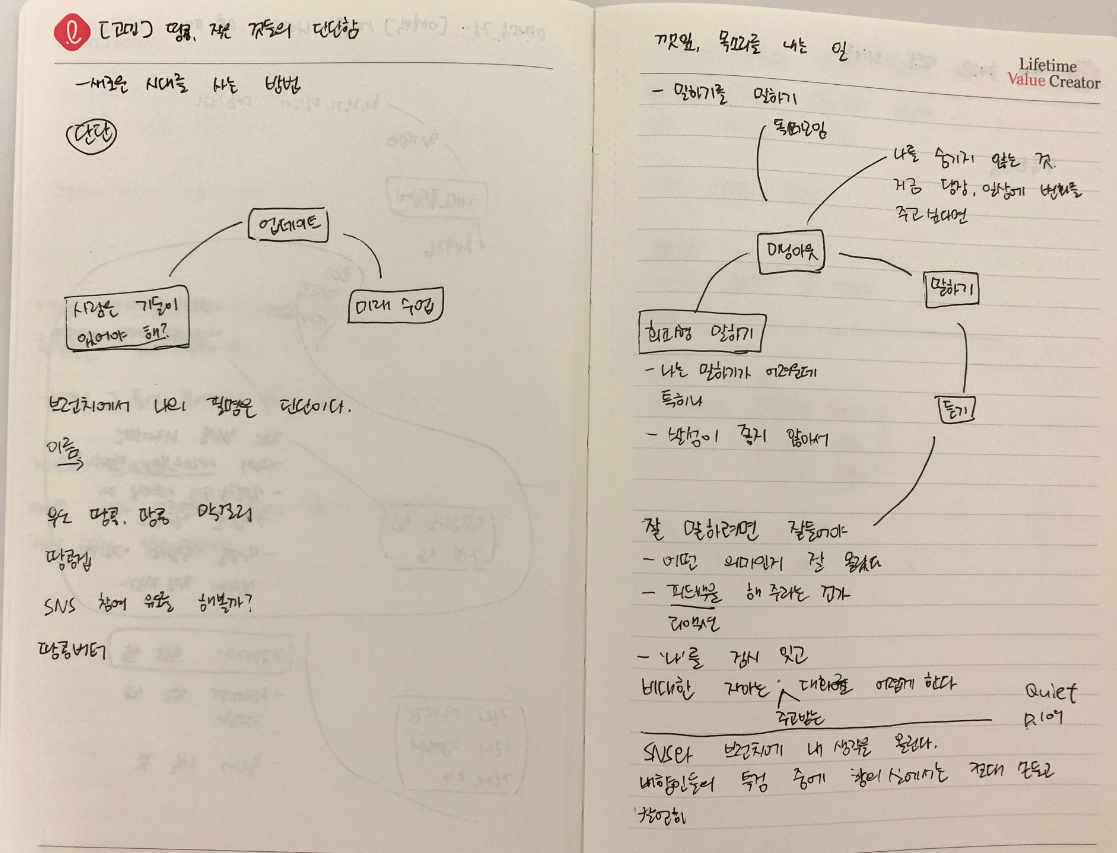 [고민] 땅콩, 작은 것들의 단단함
- 새로운 시대를 사는 방법
단단
업데이트
사랑은 기술이
있어야 해?
미래 수업
브런치에서 나의 필명은 단단이다.
이름
우도 땅콩, 땅콩 막걸리
땅콩집
SNS 참여 유도를 해볼까?
땅콩버터
깻잎, 목소리를 내는 일
Lifetime
Value Creator
- 말하기를 말하기
독서모임
나를 숨기지 않는 것.
지금 당장, 일상에 변화를
주고 싶다면
미닝아웃
말하기
회피형 말하기
- 나는 말하기가 어려운데
특히나
- 발성이 좋지 않아서
듣기
잘 말하려면 잘들어야
- 어떤 의미인지 잘 몰랐다
- 피드백을 해 주라는 건가
리액션
- '나'를 잠시 잊고
비대한 자아는 대화를 어렵게 한다
주고받는
Quiet
p.109
SNS와 브런치에 내 생각을 올린다.
내향인들의 특징 중에 강의실에서는 절대 손들고